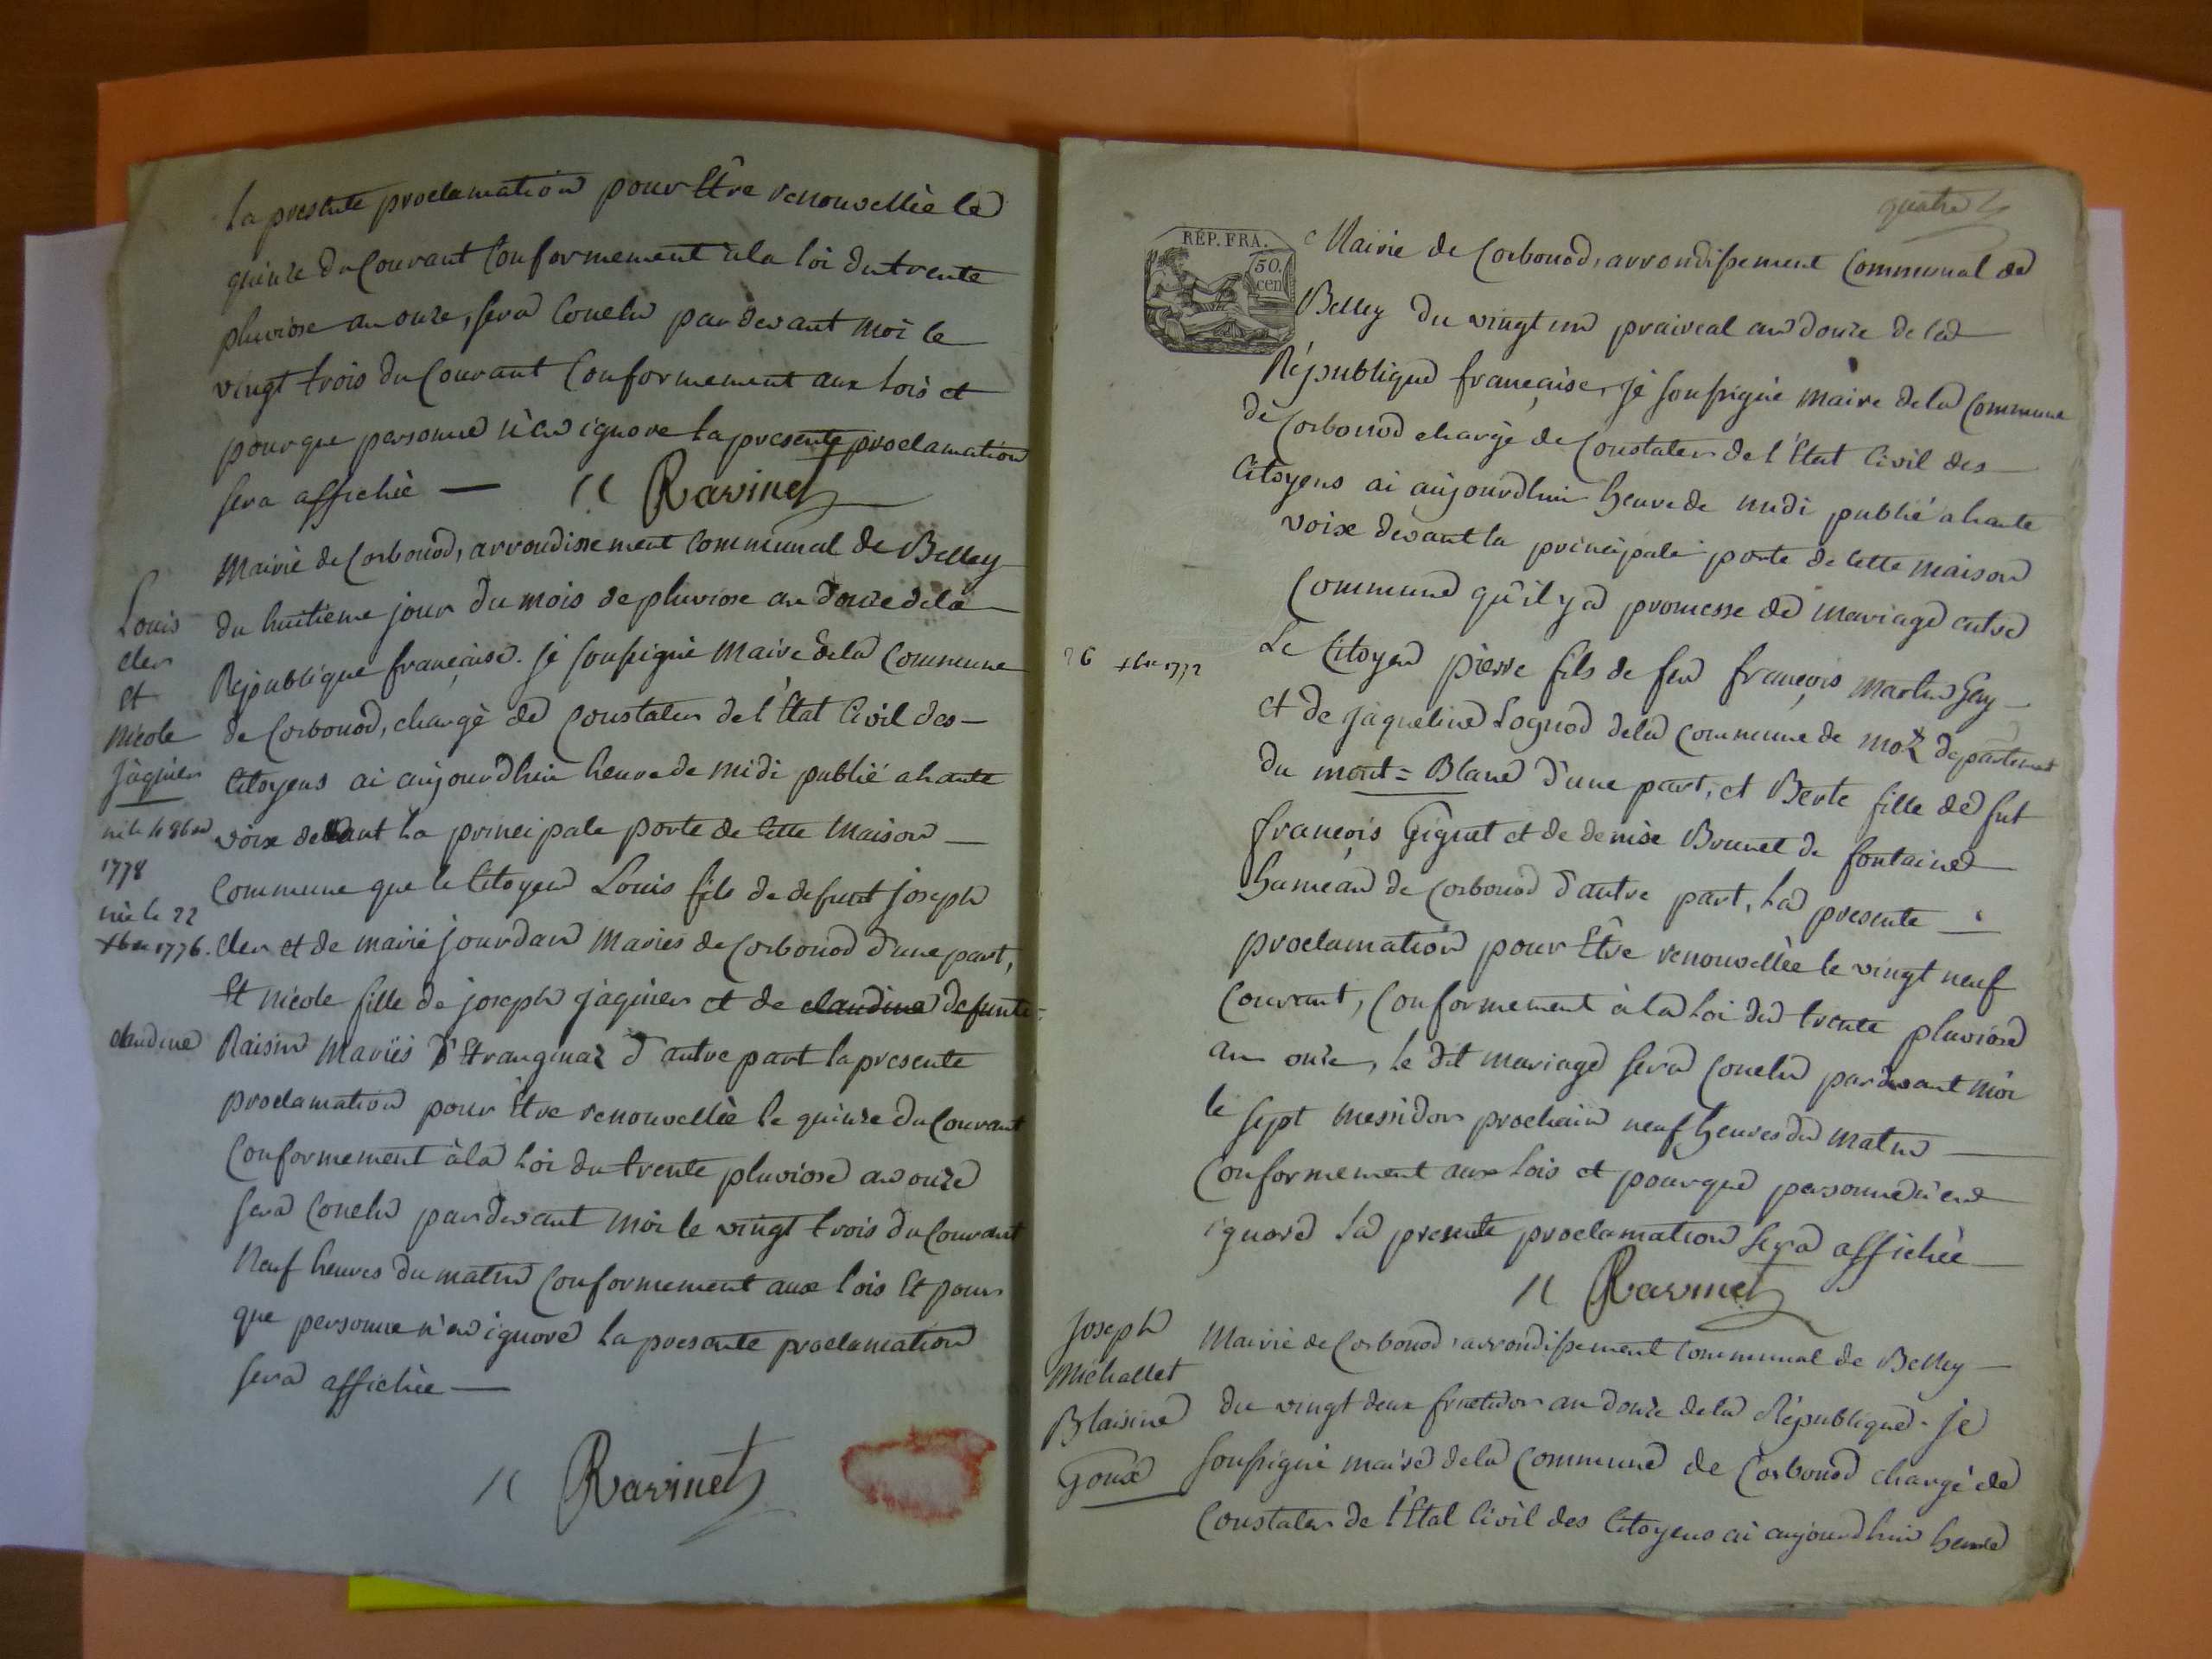 la presente proclamation pour Etre renouvellèe le
quinze du Courant Conformement à la loi du trente
pluviose an onze, sera Conclu par devant moi le
vingt trois du Courant Conformement aux Lois et
pourque personne n'en ignore la presente proclamation
sera affichèe —
Ravinet
Mairie de Corbonod, arrondissement Communal de Belley
du huitieme jour du mois de pluviose an douze de la
Republique française. je soussigné Maire de la Commune
de Corbonod, chargè de Constater de l'Etat Civil des —
Citoyens ai aujourdhui heure de midi publié a haute
voix devant la principale porte de Cette Maison —
Commune que le Citoyen Louis fils de defunt joseph
cler et de marie jourdan Mariès de Corbonod d'une part,
Et nicole fille de joseph jaquier et de claudine defunte
Raisin Mariés d'Etranginaz d'autre part la presente
proclamation pour Etre renouvellèe le quinze du Courant
Conformement à la Loi du trente pluviose an onze
sera Conclu par devant moi le vingt trois du Courant
Neuf heures du matin Conformement aux lois Et pour
que personne n'en ignore la presente proclamation
sera affichèe —
Ravinet
Louis
cler
Et
Nicole
jaquier
1778
née le 22
xbre 1776.
claudine
quatre
RÉP. FRA.
50.
cen
Mairie de Corbonod, arrondissement Communal de
Belley du vingt un prairéal an douze de la
République française, je soussigné maire de la Commune
de Corbonod chargé de Constater de l'Etat Civil des —
Citoyens ai aujourdhui heure de midi publié a haute
voix devant la principale porte de Cette maison
Commune qu'il y a promesse de mariage entre
Le Citoyen pierre fils de feu françois Martin Gay —
et de jaqueline Lognod de la Commune de Motz departement
du mont=Blanc d'une part, et Berte fille de fut
françois Gignet et de denise Brunet de fontaine
hameau de Corbonod d'autre part, La presente
proclamation pour Etre renouvellèe le vingt neuf
Courant, Conformement à la Loi du trente pluviose
an onze, le dit mariage sera Conclu par devant moi
le sept messidor prochain neuf heures du matin —
Conformement aux Lois et pourque personne n'en
ignore la presente proclamation sera affichèe —
Ravinet
xbre 1772
Joseph
Michallet
Blaisine
Goux
Mairie de Corbonod, arrondissement Communal de Belley —
du vingt deux fructidor an douze de la République. je
soussigné maire de la Commune de Corbonod chargé de
Constater de l'Etat Civil des Citoyens ai aujourdhui heure